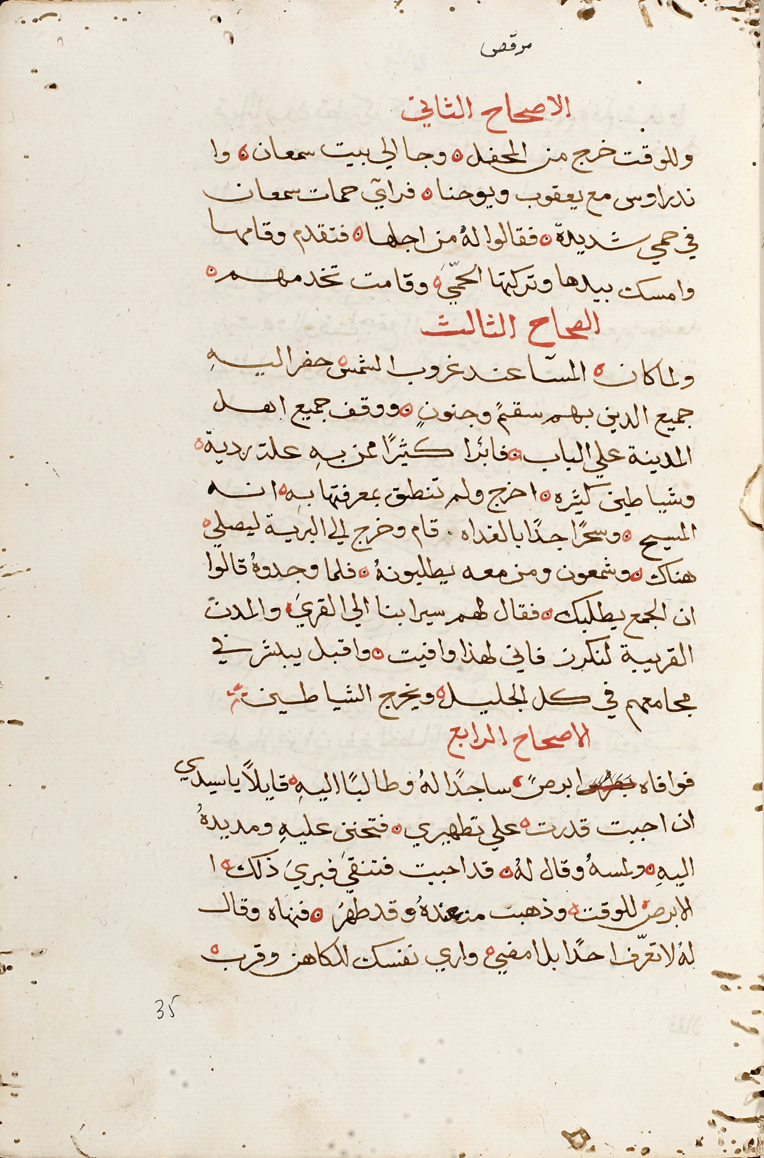 مرقص
الاصحاح الثاني
وللوقت خرج من المحفل وجا الي بيت سمعان وا
ندراوس مع يعقوب ويوحنا فرآي حمات سمعان
في حمي شديدة فقالوا لهُ من اجلها فتقدم وقامها
وامسك بيدها وتركتها الحمّيَ وقامت تخدمهم
الصحاح الثالث
ولما كان المسآ عند غروب الشمس حضر اليهِ
جميع الدين بهم سقمً وجنونٍ ووقف جميع اهل
المدينة علي الباب فابرا كثيرًا ممن بهِ علة ردية
وشياطين كثيره اخرج ولم تنطق بمعرفتها بهِ انه
المسيح وسحرًا جدًا بالغداه . قام وخرج الي البرية ليصلي
هناك وشمعون ومن معه يطلبونهُ فلما وجدوهُ قالوا
ان الجمع يطلبك فقال لهم سيرا بنا الي القريَ والمدن
القريبة لنكرز فاني لهذا وافيت واقبل يبشر في
مجامعهم في كل الجليل ويخرج الشياطين
الاصحاح الرابع
فوافاه ابرصً ساجدًا لهُ وطالبًا اليهِ قايلاً ياسيدي
ان احببت قدرت علي تطهيري فتحنن عليهِ ومد يدهُ
اليهِ ولمسهُ وقال لهُ قد احببت فتنقيَ فبريَ ذلك ا
الابرص للوقت وذهبت من عندهُ وقد طهرُ فنهاه وقال
لهُ لا تعرّف احدًا بل امضي واري نفسك للكاهن وقرب
35